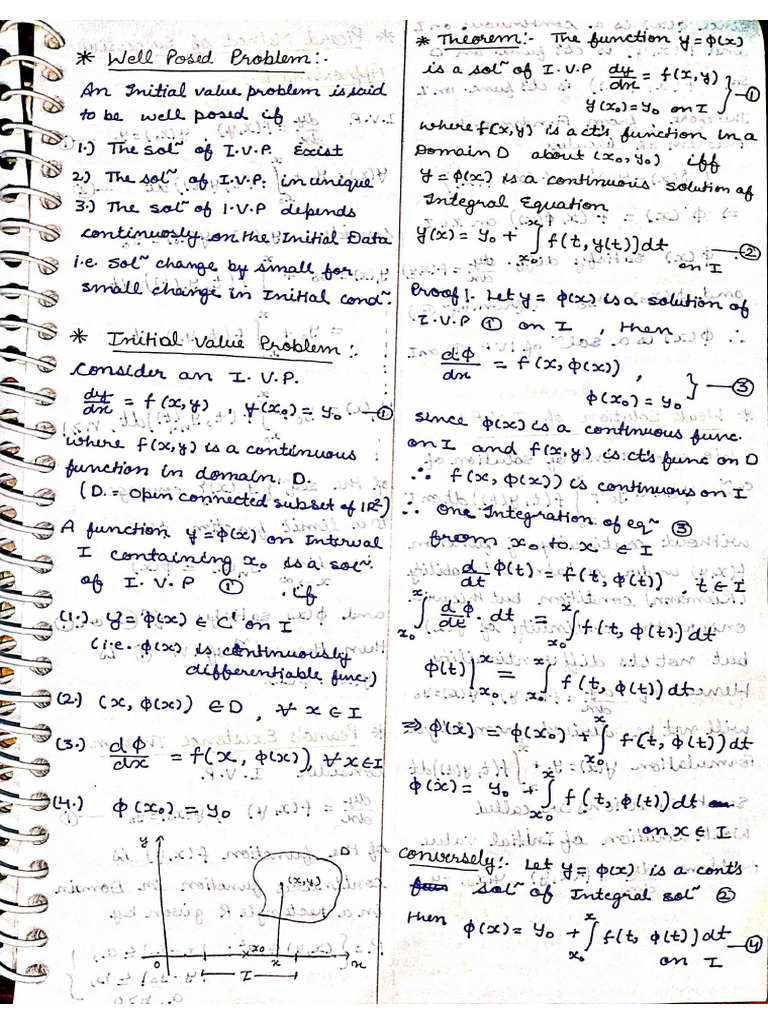 * Well Posed Problem:-
An Initial value problem is said
to be well posed if
1.) The sol~ of I.V.P. Exist
2.) The sol~ of I.V.P. in unique
3.) The sol~ of I.V.P depends
continuosly on the Initial Data
i.e. sol~ change by small for
small change in Initial cond~.
* Initial Value Problem:-
Consider an I.V.P.
dy/dx = f(x,y) , y(x₀) = y₀ —①
where f(x,y) is a continuous
function in domain D.
(D = open connected subset of IR².)
A function y=ϕ(x) on Interval
I containing x₀ is a sol~.
of I.V.P ① if
(1.) y = ϕ(x) ∈ C' on I
(i.e. ϕ(x) is continuously
differentiable func.)
(2.) (x, ϕ(x)) ∈ D , ∀ x ∈ I
(3.) dϕ/dx = f(x, ϕ(x)), ∀ x ∈ I
(4.) ϕ(x₀) = y₀
y
(x,y)
x₀
0 x x
I
* Theorem:- The function y=ϕ(x)
is a sol~ of I.V.P dy/dx = f(x,y)
y(x₀)=y₀ on I } —①
where f(x,y) is a ct's function in a
Domain D about (x₀,y₀) iff
y=ϕ(x) is a continuous solution of
Integral Equation
y(x) = y₀ + ∫ₓ₀ˣ f(t, y(t)) dt —②
on I
Proof:- Let y = ϕ(x) is a solution of
I.V.P ① on I , then
dϕ/dx = f(x, ϕ(x)) ,
ϕ(x₀) = y₀ } —③
since ϕ(x) is a continuous func.
on I and f(x,y) is ct's func on D
∴ f(x, ϕ(x)) is continuous on I
∴ One Integration of eq~ ③
from x₀ to x ∈ I
d/dt ϕ(t) = f(t, ϕ(t)) , t ∈ I
∫ₓ₀ˣ dϕ/dt . dt = ∫ₓ₀ˣ f(t, ϕ(t)) dt
ϕ(t)|ₓ₀ˣ = ∫ₓ₀ˣ f(t, ϕ(t)) dt
⇒ ϕ(x) = ϕ(x₀) + ∫ₓ₀ˣ f(t, ϕ(t)) dt
ϕ(x) = y₀ + ∫ₓ₀ˣ f(t, ϕ(t)) dt
on x ∈ I
Conversely:- Let y = ϕ(x) is a cont's
sol~ of Integral sol~ ②
then
ϕ(x) = y₀ + ∫ₓ₀ˣ f(t, ϕ(t)) dt —④
on I